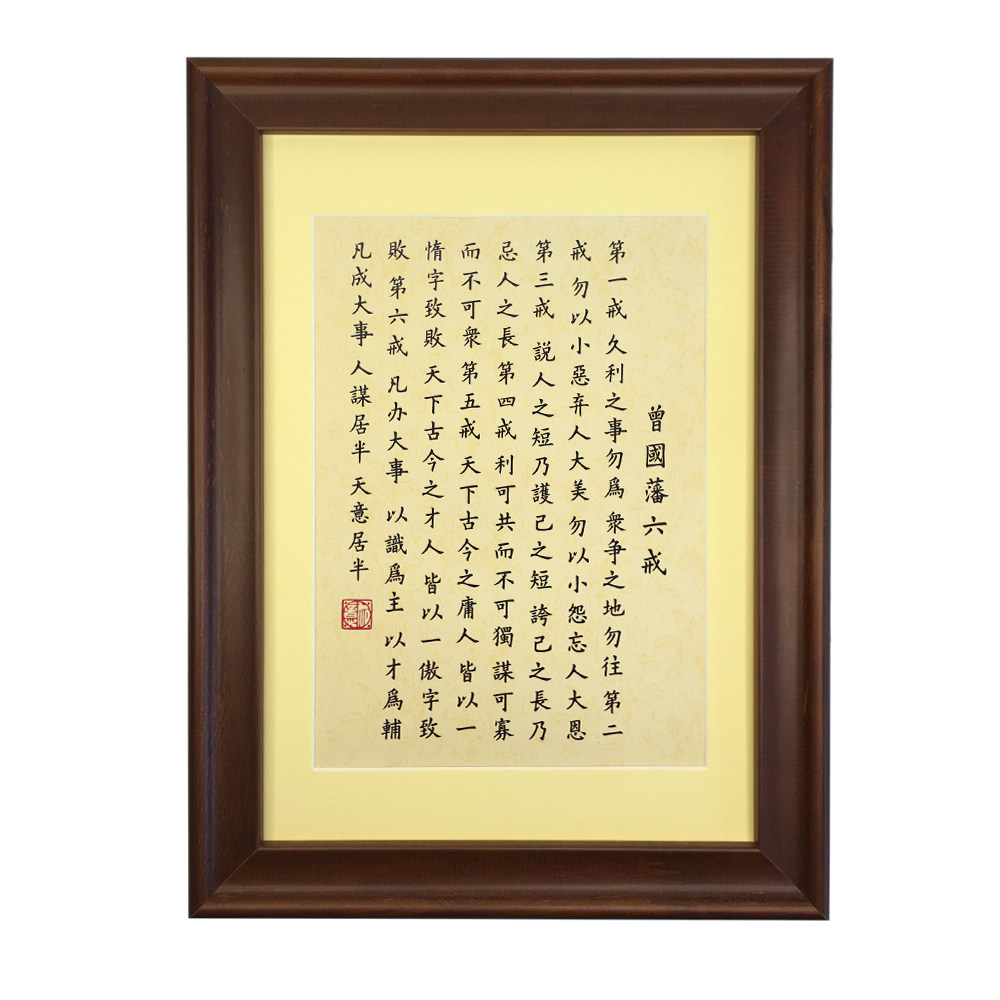 曾國藩六戒
第一戒 久利之事勿爲 衆争之地勿往 第二
戒 勿以小惡弃人大美 勿以小怨忘人大恩
第三戒 説人之短乃護己之短 誇己之長乃
忌人之長 第四戒 利可共而不可獨 謀可寡
而不可衆 第五戒 天下古今之庸人 皆以一
惰字致敗 天下古今之才人 皆以一傲字致
敗 第六戒 凡办大事 以識爲主 以才爲輔
凡成大事 人謀居半 天意居半